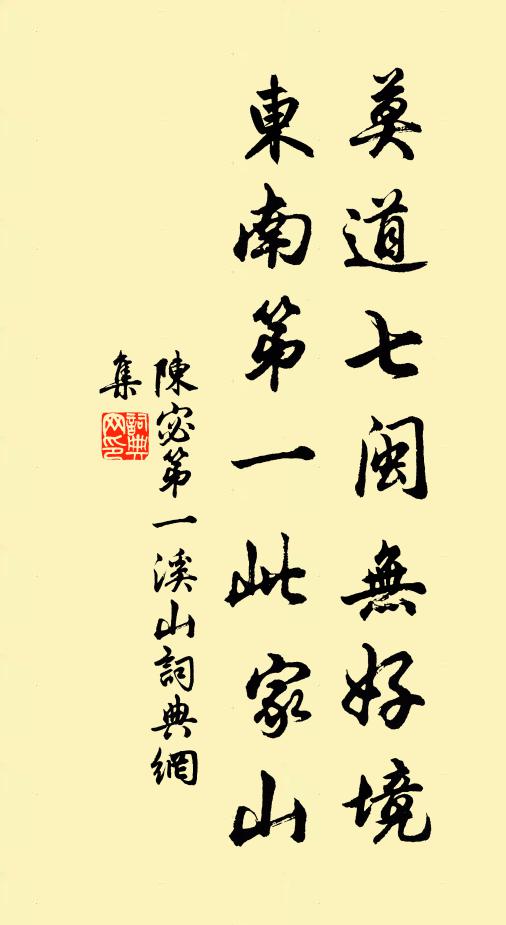 莫道七閩無好境
東南第一此家山
陳宓第一溪山詞典網
集
詞典
网印